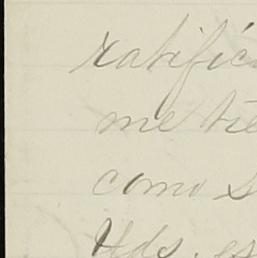 ratific
me tie
como S
Uds. es